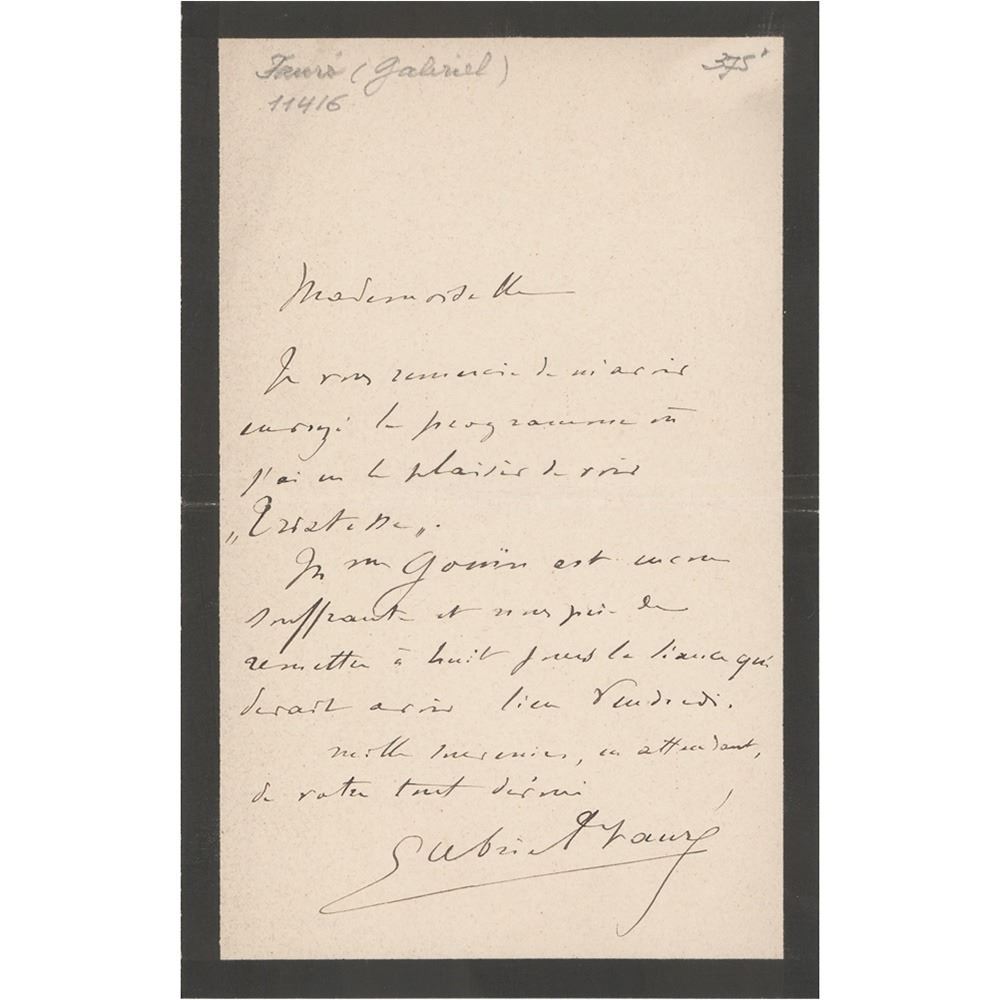 Fauré (Gabriel)
375
11416
Mademoiselle
Je vous remercie de m'avoir
envoyé le programme où
j'ai eu le plaisir de voir
„Tristesse„.
Mme Gouïn est encore
souffrante et vous prie de
remettre à huit jours la séance qui
devait avoir lieu Vendredi.
mille souvenirs, en attendant,
de votre tout dévoué
Gabriel Fauré